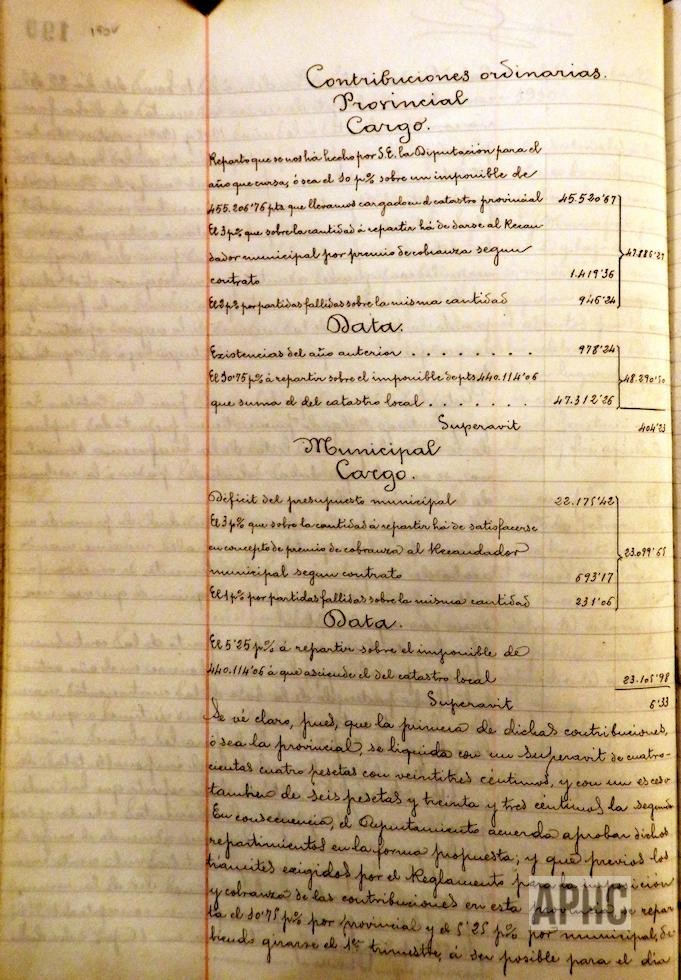 190v
Contribuciones ordinarias.
Provincial
Cargo.
Reparto que se nos há hecho por S.E. la Diputación para el
año que cursa, ó sea el 10 p% sobre un imponible de
455.206'76 pts que llevamos cargado en el catastro provincial 45.520'67
El 3 p% que sobre la cantidad á repartir há de darse al Recau-
dador municipal por premio de cobranza segun
contrato 1.419'36
47.886'27
El 2 p% por partidas fallidas sobre la misma cantidad 946'24
Data.
Existencias del año anterior . . . . . . . . 978'24
El 10'75 p% á repartir sobre el imponible de pts 440.114'06
48.290'50
que suma el del catastro local . . . . . . 47.312'26
Superavit 404'23
Municipal
Cargo.
Déficit del presupuesto municipal 22.175'42
El 3 p% que sobre la cantidad á repartir há de satisfacerse
en concepto de premio de cobranza al Recaudador
23.099'65
municipal segun contrato 693'17
El 1 p% por partidas fallidas sobre la misma cantidad 231'06
Data.
El 5'25 p% á repartir sobre el imponible de
440.114'06 á que asciende el del catastro local 23.105'98
Superavit 6'33
Se vé claro, pues, que la primera de dichas contribuciones,
ó sea la provincial, se liquida con un superavit de cuatro-
cientas cuatro pesetas con veintitres céntimos, y con un exceso
tambien de seis pesetas y treinta y tres céntimos la segunda
En consecuencia, el Ayuntamiento acuerda aprobar dichos
repartimientos en la forma propuesta; y que previos los
trámites exigidos por el Reglamento para la imposición
y cobranza de las contribuciones en esta se repar
ta el 10'75 p% por provincial y el 5'25 p% por municipal, de-
biendo girarse el 1er trimestre, á ser posible para el dia
APHC